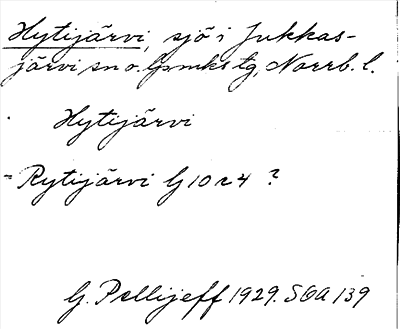 Hytijärvi, sjö i Jukkas-
järvi sn o. lpmkstg, Norrb. l.
Hytijärvi
= Rytijärvi G 10 r 4 ?
G. Pellijeff 1929. SOA 139